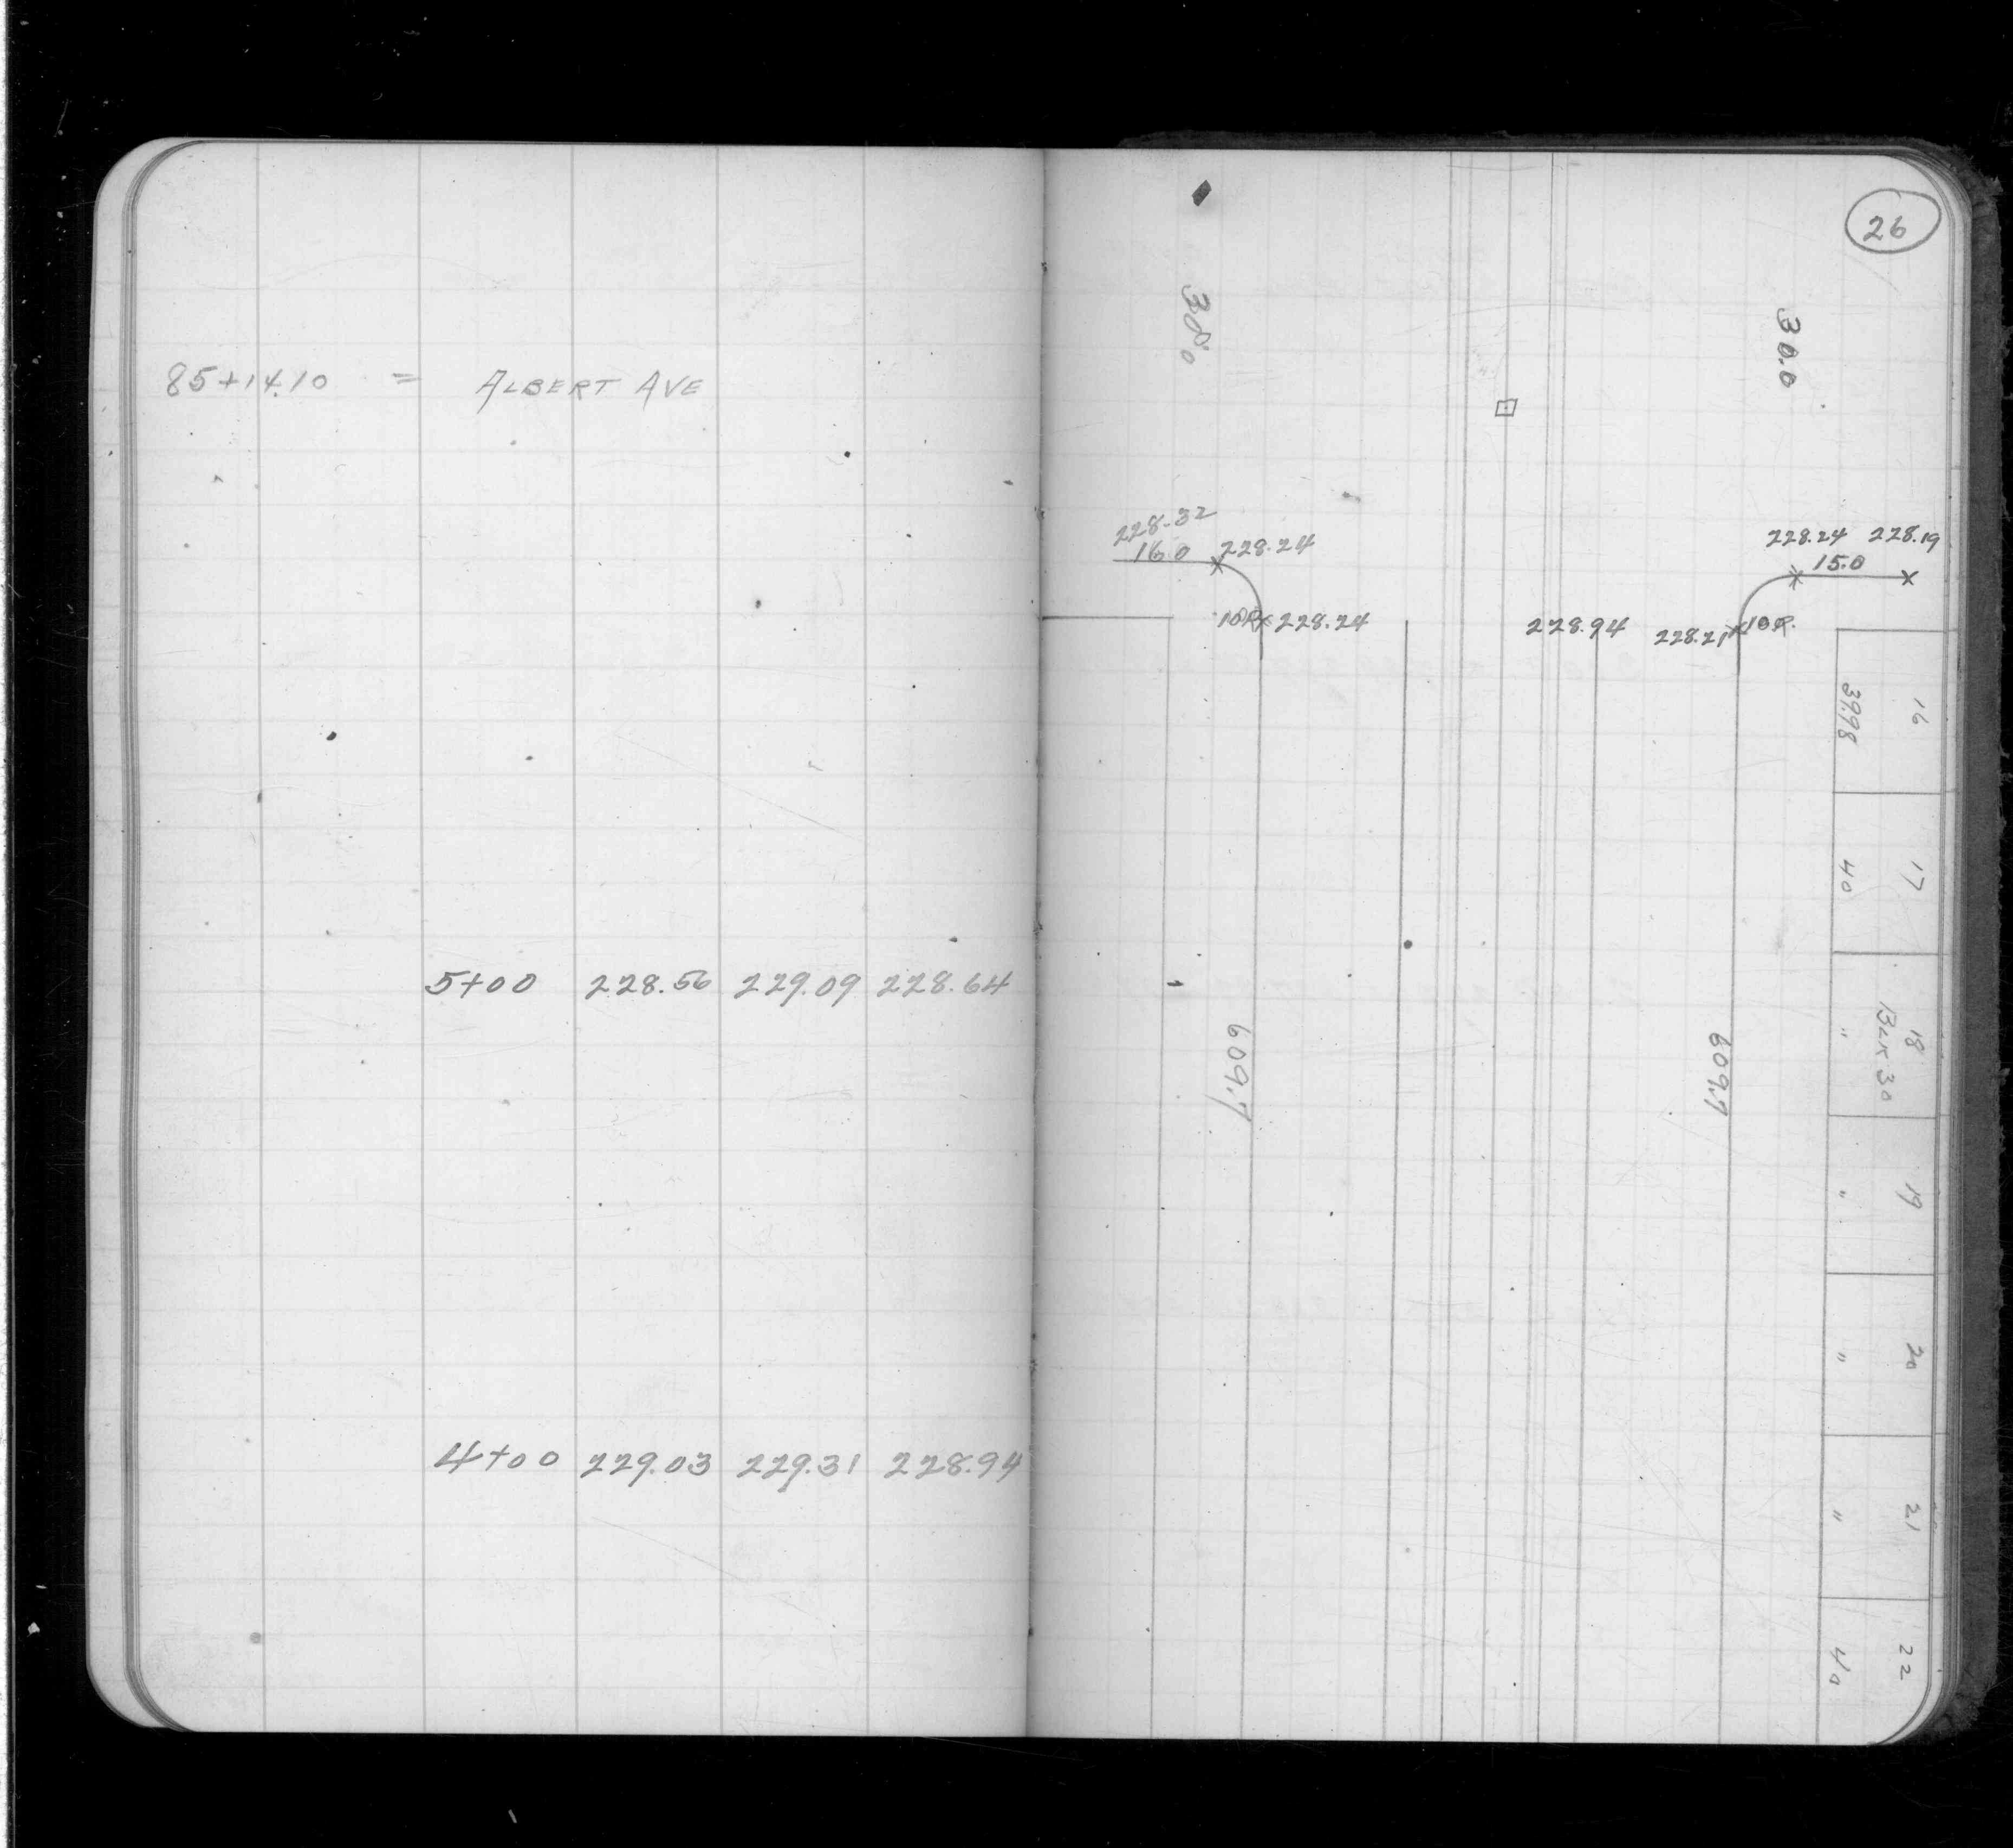 85+14.10 = ALBERT AVE
5+00 228.56 229.09 228.64
4+00 229.03 229.31 228.94
26
30.0
228.32
16.0 228.24
228.24 228.19
15.0
10R 228.24
228.94 228.21 10R.
16
39.98
17
40
18
BLK 30
"
609.7
609.7
19
"
20
"
21
"
22
40